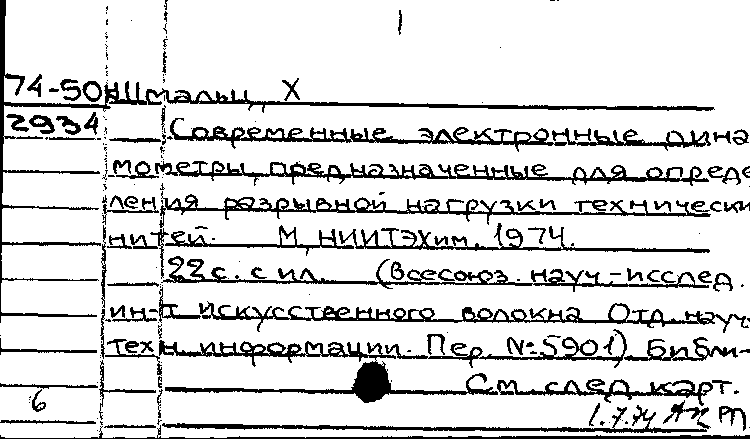 74-50н Шмальц, Х
2934 Современные электронные дина
мометры, предназначенные для опреде
ления разрывной нагрузки технически
нитей. М, НИИТЭХим, 1974.
22 с. с ил. (Всесоюз. науч.-исслед.
ин-т искусственного волокна Отд. науч-
техн. информации. Пер. №5901) Библи-
См. след карт.
6 1.7.74